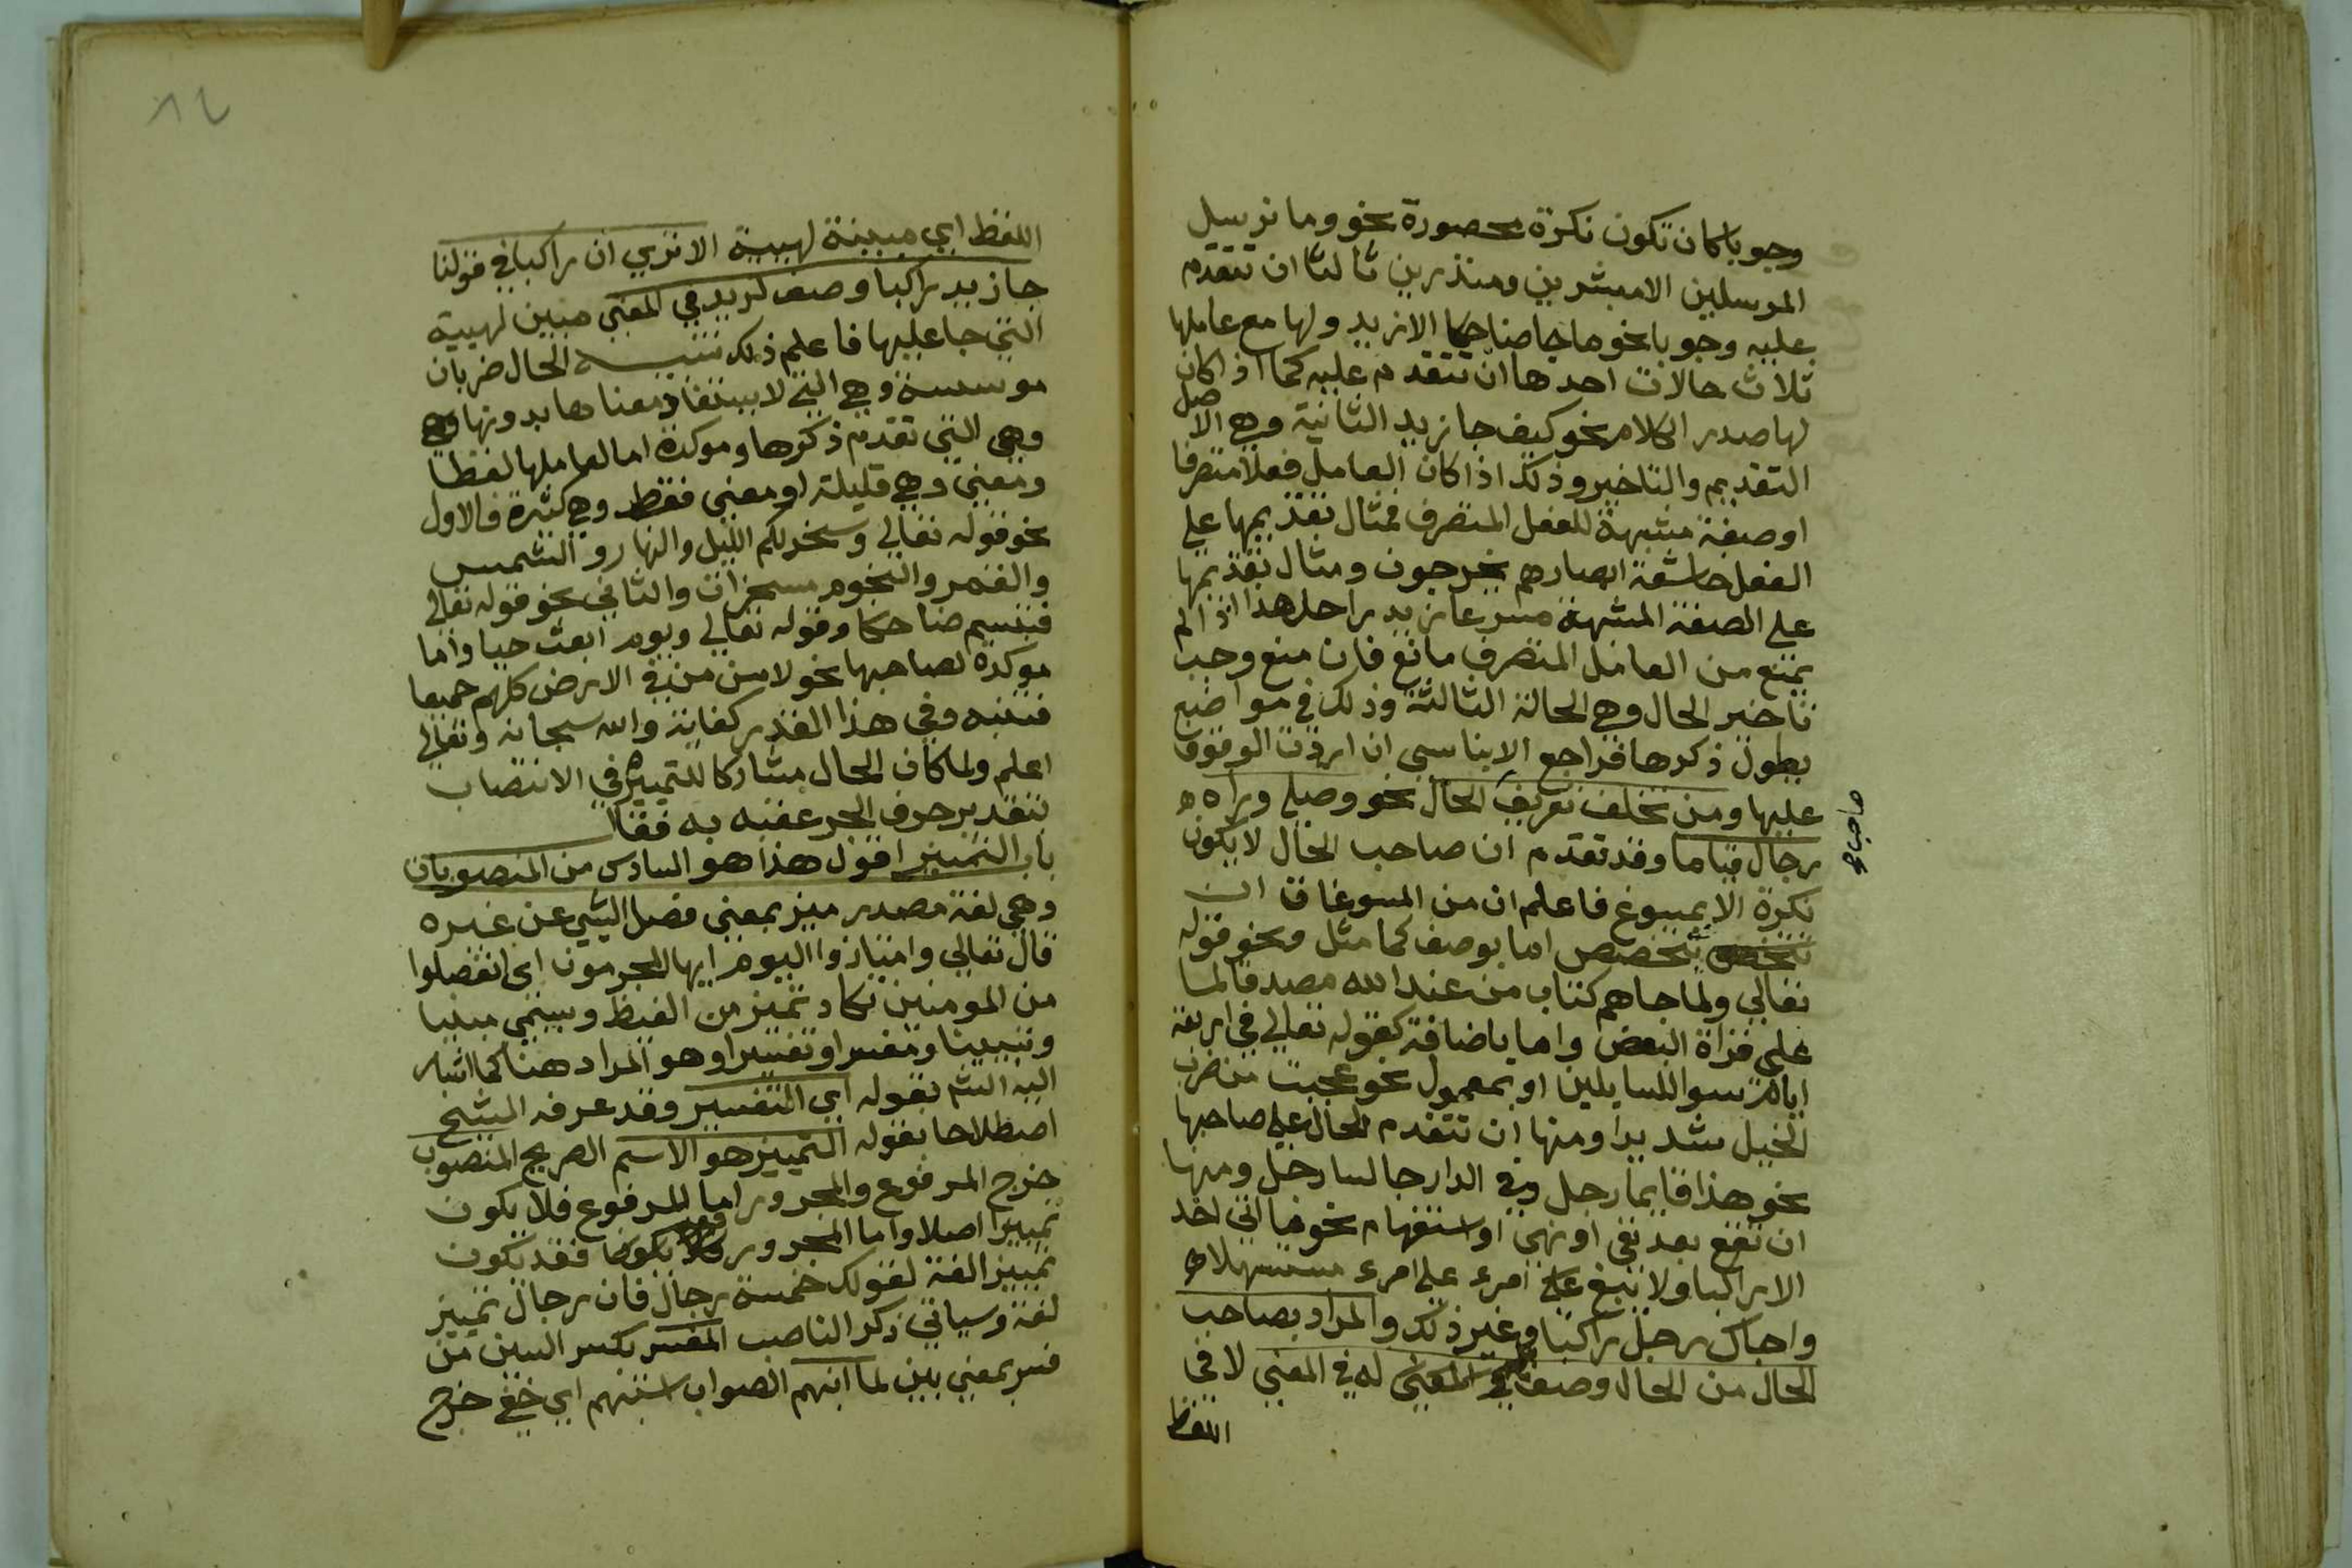 وجوبا كان تكون نكرة محصورة نحو وما نرسل
المرسلين الا مبشرين ومنذرين ثالثا ان تتقدم
عليه وجوبا نحو ما جا ضاحكا الا زيد ولها مع عاملها
ثلاث حالات احدها ان تتقدم عليه كما اذا كان
لها صدر الكلام نحو كيف جا زيد الثانية وهي الاصل
التقديم والتاخير وذلك اذا كان العامل فعلا متصرفا
او صفة مشبهة للفعل المتصرف فمثال تقديمها علي
الفعل خاشعة ابصارهم يخرجون ومثال تقديمها
علي الصفة المشبهة مسرعا زيد راحل هذا اذا لم
يمنع من العامل المتصرف مانع فان منع وجب
تاخير الحال وهي الحالة الثالثة وذلك في مواضع
يطول ذكرها فراجع الابناسي ان اردت الوقوف
عليها ومن تخلف تعريف الحال نحو وصلي وراه
رجال قياما وقد تقدم ان صاحب الحال لا يكون
صاحب
نكرة الا بمسوغ فاعلم ان من المسوغات ان
يتخصص اما بوصف كما مثل ونحو قوله
تعالي ولما جاهم كتاب من عند الله مصدقا لما
علي قراة البعض واما باضافة كقوله تعالي في اربعة
ايام سوا للسايلين او بمعمول نحو عجبت من ضرب
الخيل شديدا ومنها ان تتقدم الحال علي صاحبها
نحو هذا قايما رجل وفي الدار جالسا رجل ومنها
ان تقع بعد نفي او نهي او استفهام نحو ما اتي احد
الا راكبا ولا تبغ علي امرء علي امرء مستسهلا
واجاك رجل راكبا وغير ذلك والمراد بصاحب
الحال من الحال وصف له في المعني لا في
اللفظ
٨٢
اللفظ اي مبينة لهيية الا تري ان راكبا في قولنا
جا زيد راكبا وصف لزيد في المعني مبين لهيية
التي جا عليها فاعلم ذلك تنبيه الحال ضربان
موسسة وهي التي لا يستفاد معناها بدونها وهي
وهي التي تقدم ذكرها وموكدة اما لعاملها لفظا
ومعني وهي قليلة او معني فقط وهي كثيرة فالاول
نحو قوله تعالي وسخر لكم الليل والنهار والشمس
والقمر والنجوم مسخرات والثاني نحو قوله تعالي
فتبسم ضاحكا وقوله تعالي ويوم ابعث حيا واما
موكدة لصاحبها نحو لامن من في الارض كلهم جميعا
فتنبه وفي هذا القدر كفاية والله سبحانه وتعالي
اعلم ولما كان الحال مشاركا للتمييز في الانتصاب
بتقدير حرف الجر عقبه به فقال
باب التمييز اقول هذا هو السادس من المنصوبات
وهي لغة مصدر ميز بمعني فصل الشي عن غيره
قال تعالي وامتازوا اليوم ايها المجرمون اي انفصلوا
من المومنين تكاد تميز من الغيظ ويسمي مبينا
وتبيينا ومفسرا وتفسيرا وهو المراد هنا كما اشار
اليه الش بقوله اي التفسير وقد عرفه الشيخ
اصطلاحا بقوله التمييز هو الاسم الصريح المنصوب
خرج المرفوع والمجرور اما المرفوع فلا يكون
تمييزا اصلا واما المجرور فقد يكون
تمييز الغة لقولك خمسة رجال فان رجال تمييز
لغة وسياتي ذكر الناصب المفسر بكسر السين من
فسر بمعني بين لما انبهم الصواب استبهم اي خفي خرج